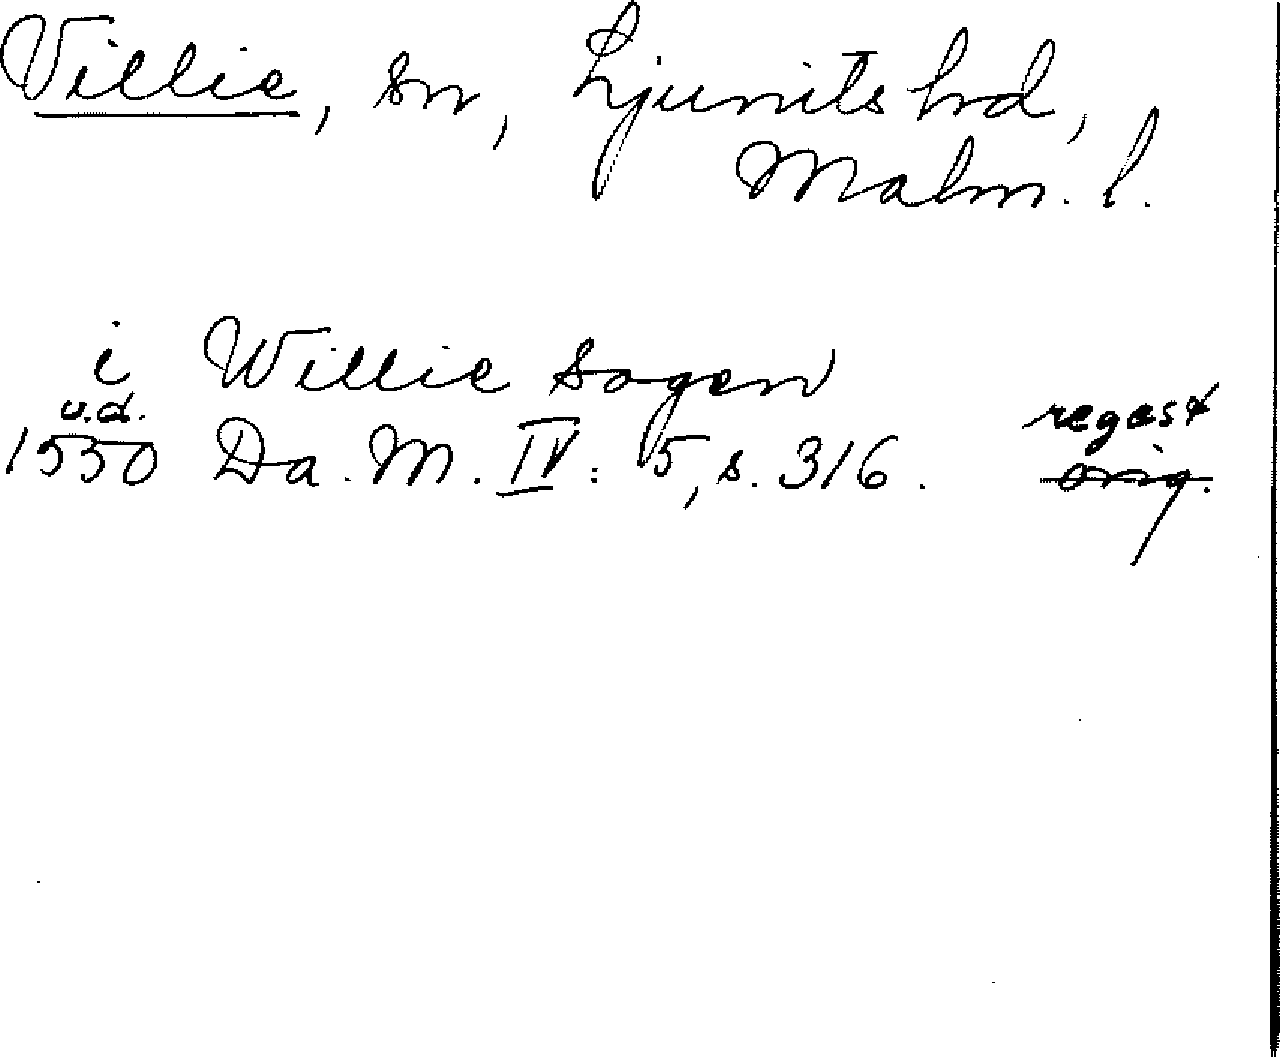 Villie, sn, Ljunits hd,
Malm. l.
i Willie sogen
u.d.
1550 Da. M. IV: 5, s. 316. regest
orig.